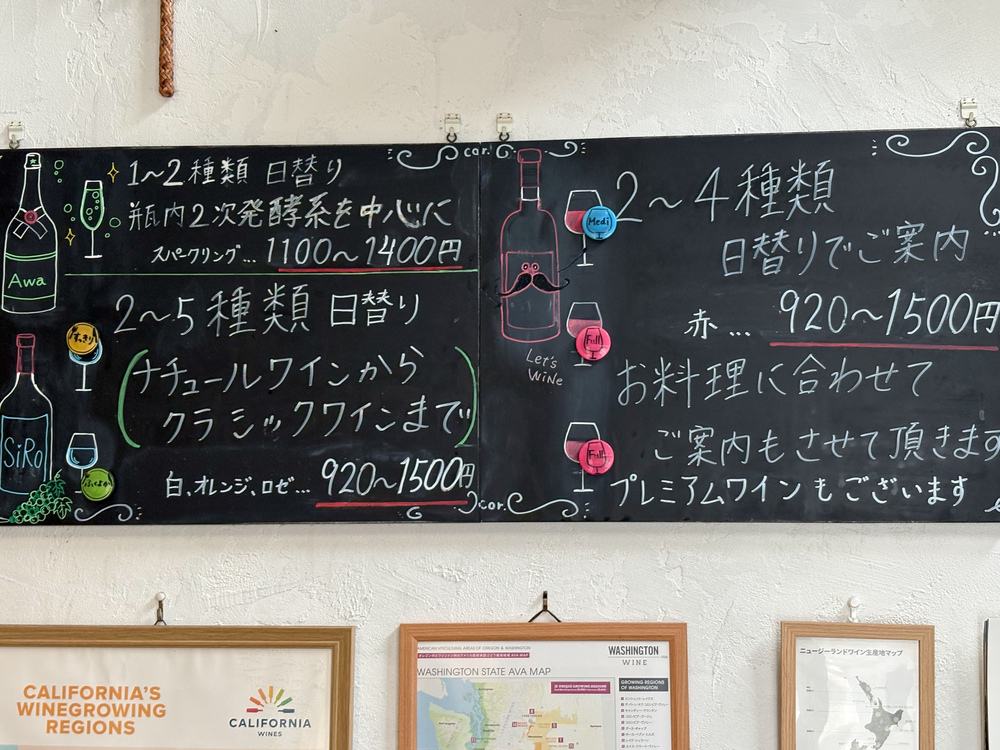 car.
1〜2種類 日替り
瓶内2次発酵系を中心に
スパークリング… 1100〜1400円
Awa
2〜5種類 日替り
すっきり
(ナチュールワインから
クラシックワインまで)
SiRo
ふくよか
白、オレンジ、ロゼ… 920〜1500円
car.
2〜4種類
Medi
日替りでご案内
赤… 920〜1500円
Full
Let's
WiNe
お料理に合わせて
ご案内もさせて頂きます
Full
プレミアムワインもございます
CALIFORNIA'S
WINEGROWING
REGIONS
CALIFORNIA
WINES
AMERICAN VITICULTURAL AREAS OF OREGON & WASHINGTON
WASHINGTON
WINE
WASHINGTON STATE AVA MAP
GROWING REGIONS
OF WASHINGTON
ニュージーランドワイン生産地マップ